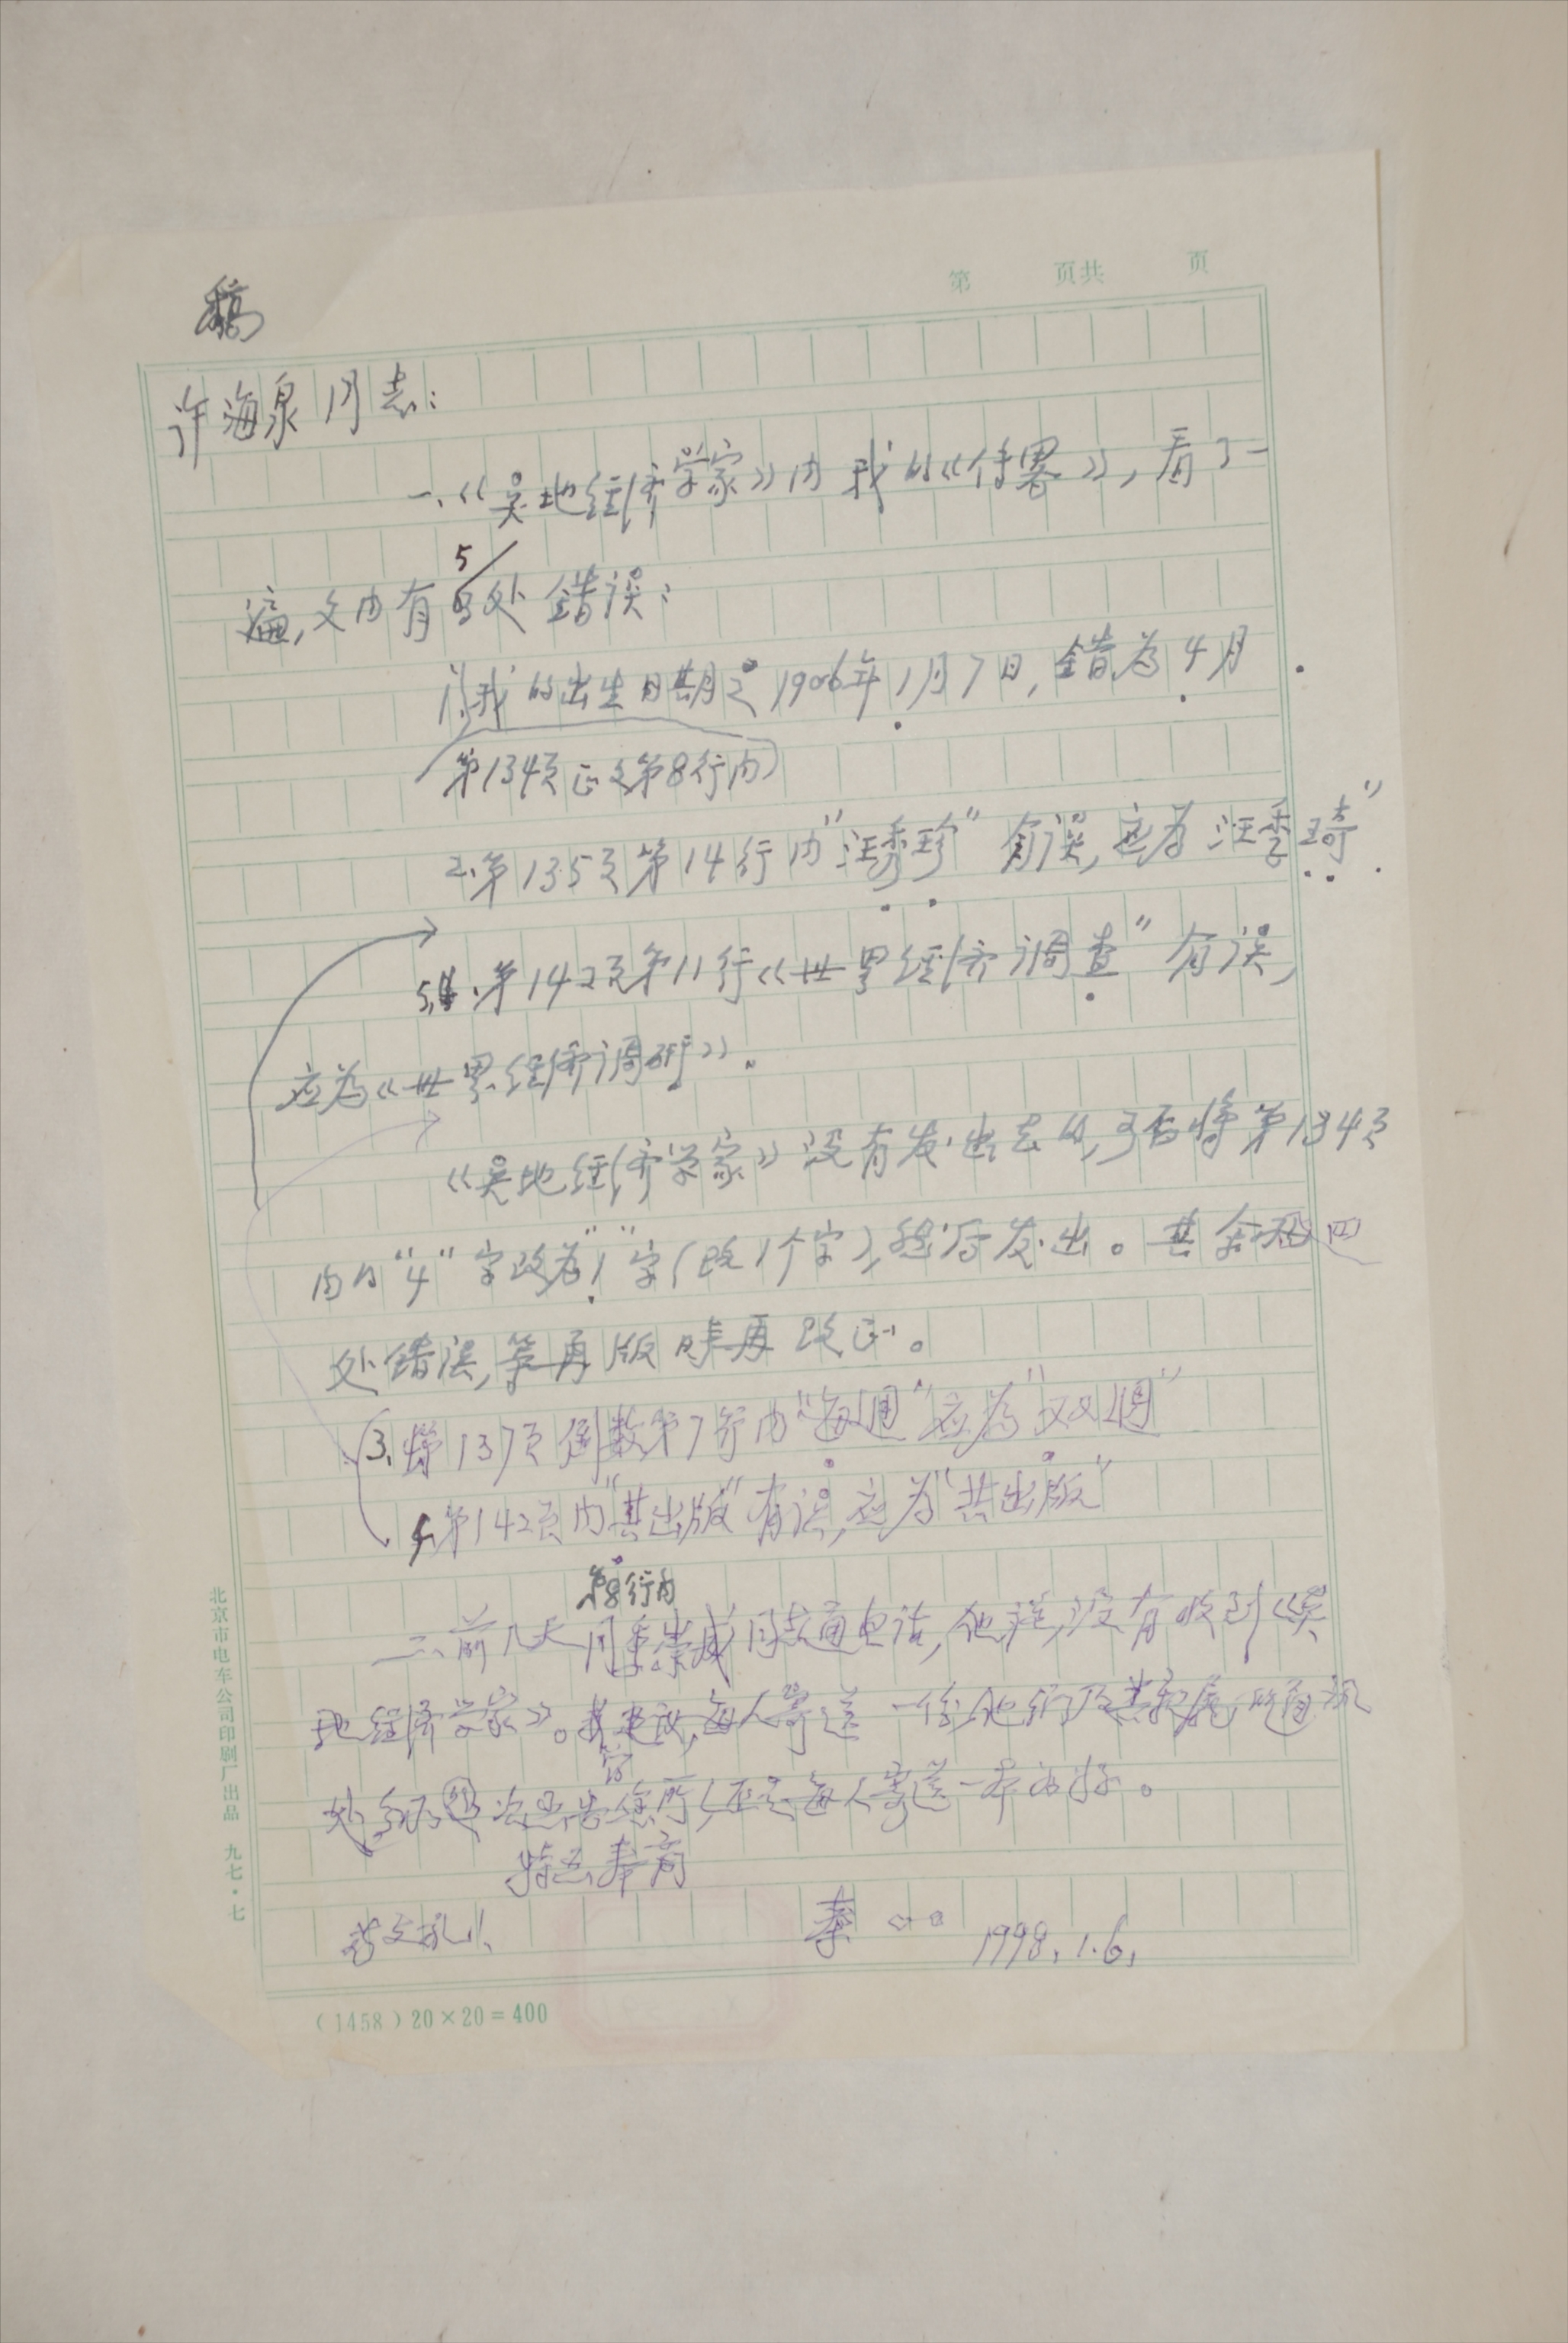 第 页共 页
稿
许海泉同志：
一、《吴地经济学家》内我的《传略》，看了一
遍，文内有5处错误：
1、我的出生日期是1906年1月7日，错为4月
第134页正文第8行内）
2、第135页第14行内“汪秀珍”有误，应为汪季琦”
5、第142页第11行《世界经济调查”有误，
应为《世界经济调研》．
《吴地经济学家》没有发出去的，可否将第134页
内的“4”字改为“1”字（改1个字），然后发出。其余四
处错误，等再版时再改正。
3、第137页倒数第7行内“每周”应为“双周”
4、第142页内“其出版”有误，应为“共出版”
第8行内
二、前几天同季崇威同志通电话，他说，没有收到《吴
地经济学家》。我建议，每人寄送一份，他们及其亲属
还是每人寄送一本为好。
特此奉商
敬礼！
秦 1998.1.6.
北京市电车公司印刷厂出品 九七·七
（1458）20×20=400